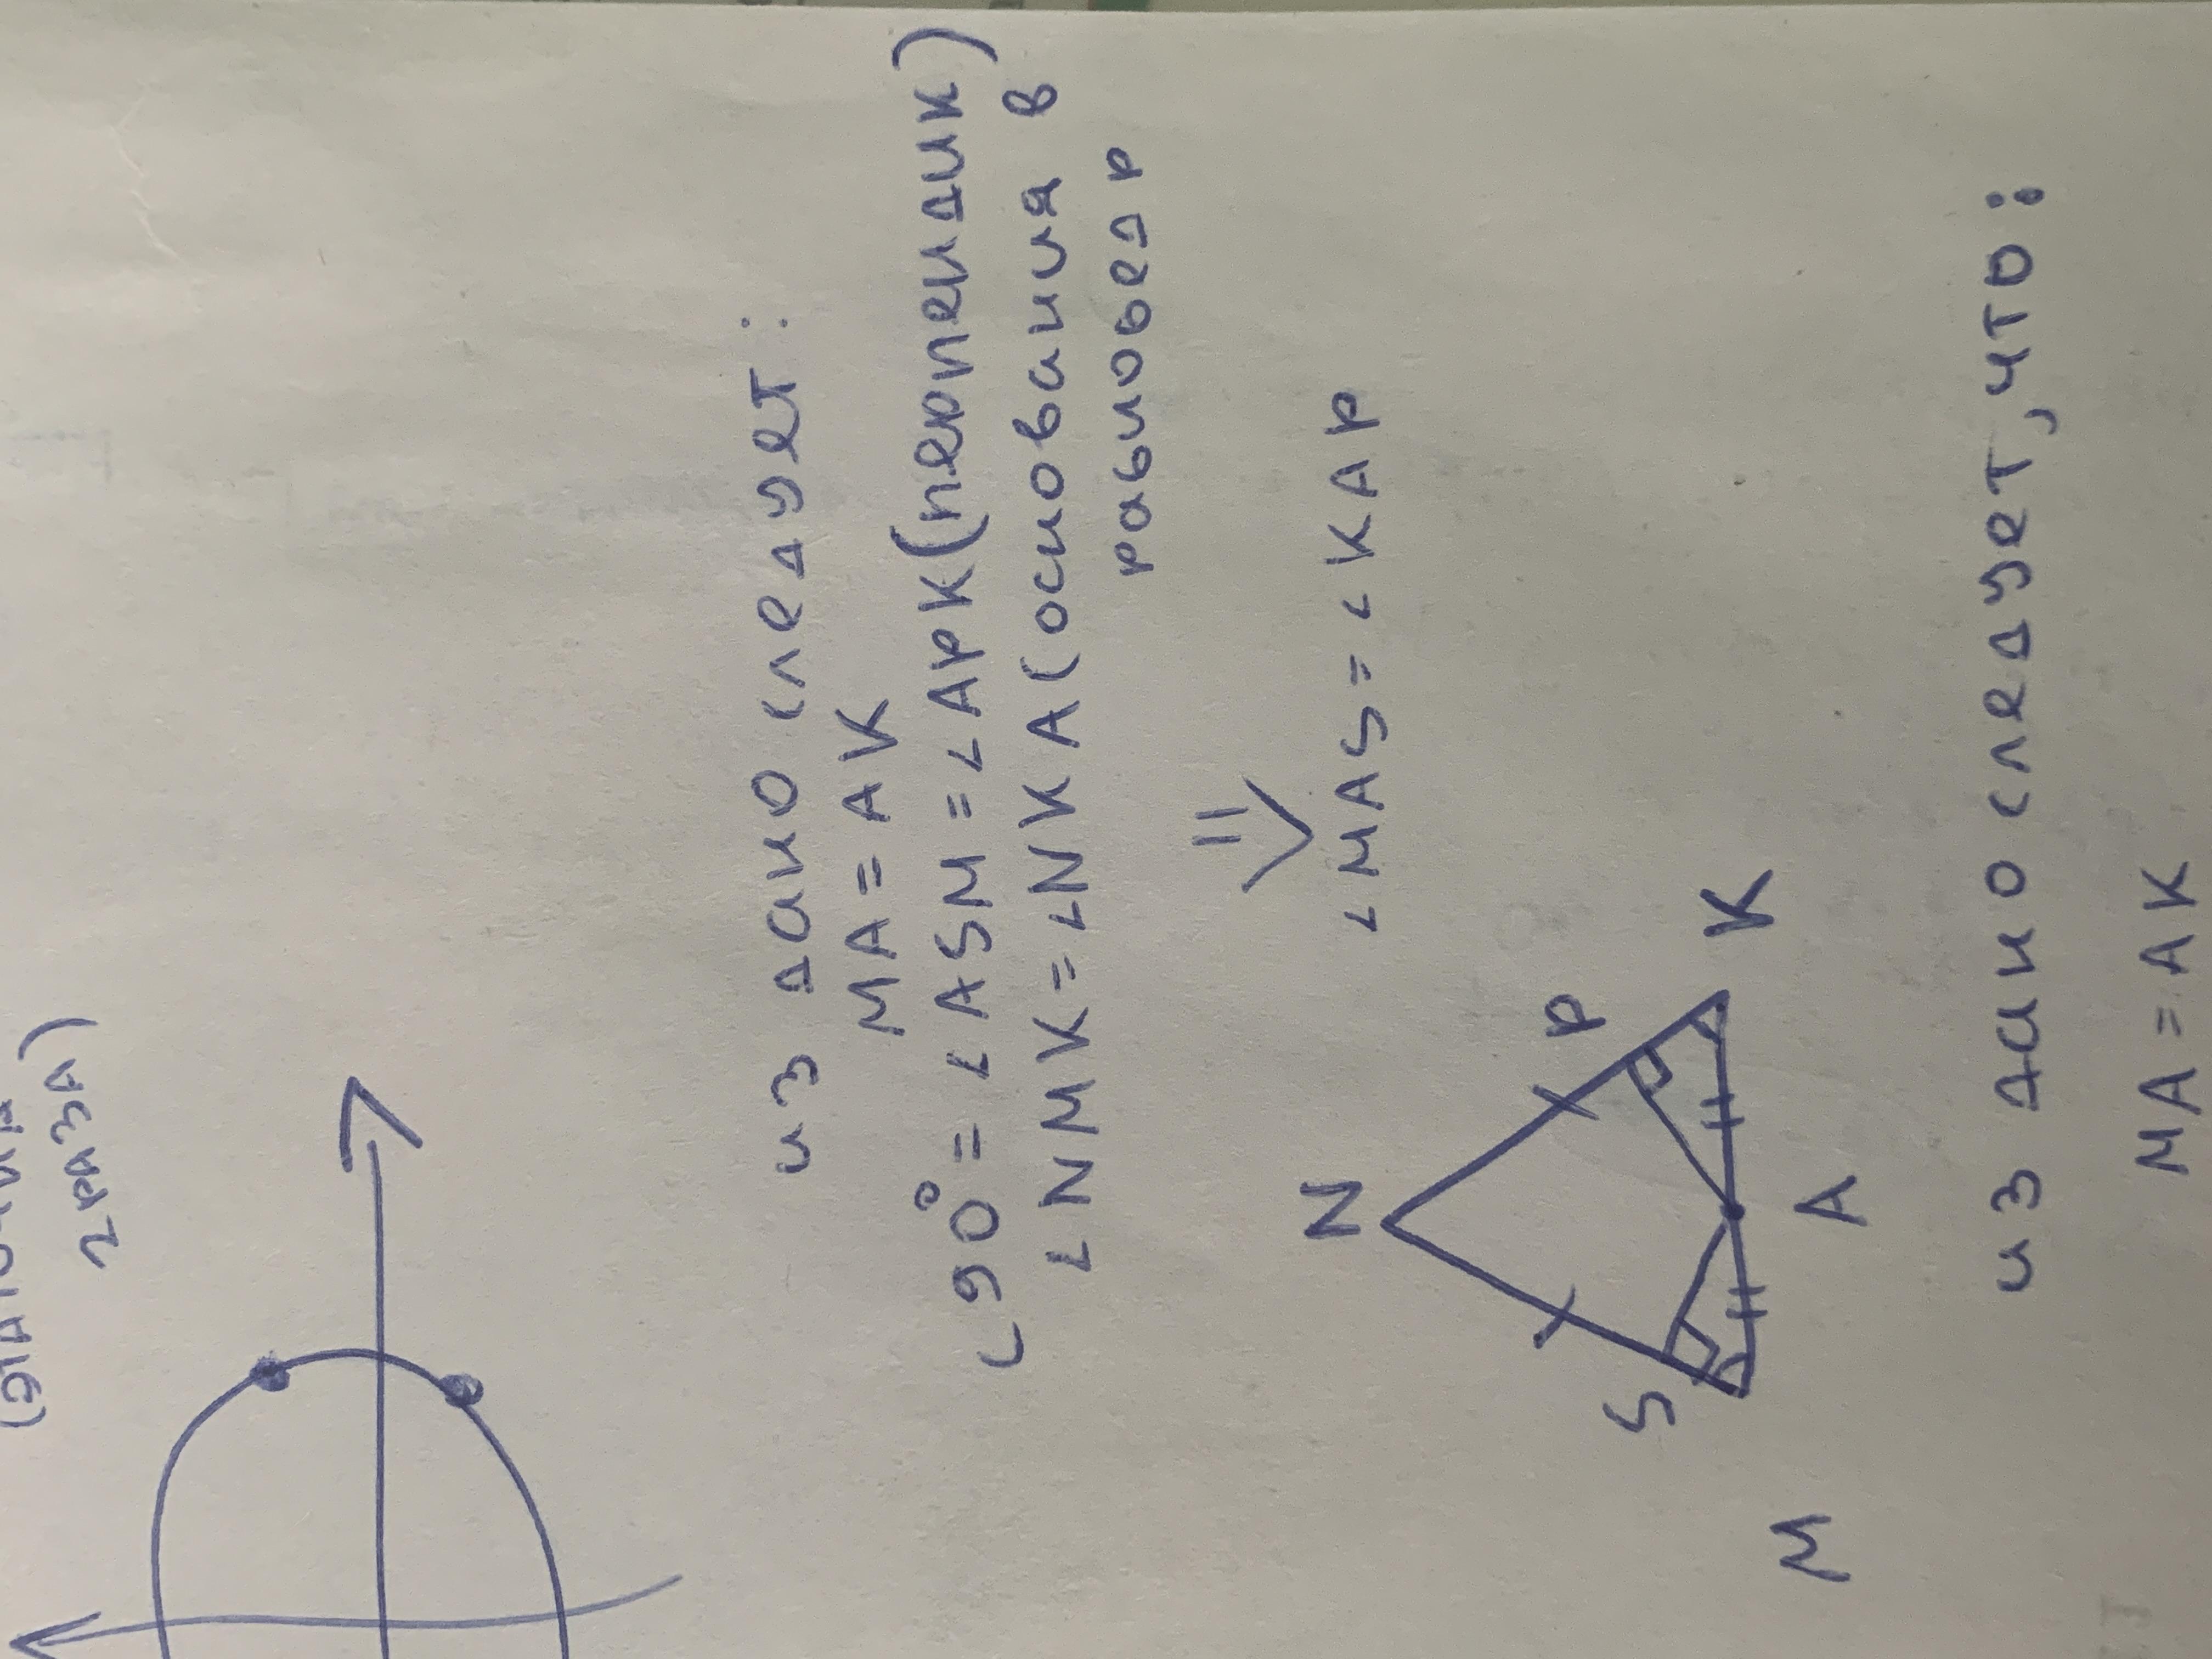 2 РАЗА)
из дано следует:
MA = AK
(90° = ∠ASM = ∠APK (перпендик)
∠NMK = ∠NKA (основания в
равнобедр
=>
∠MAS = ∠KAP
N
S
P
M
A
K
из дано следует, что:
MA = AK